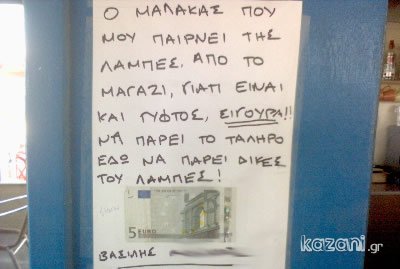 Ο ΜΑΛΑΚΑΣ ΠΟΥ
ΜΟΥ ΠΑΙΡΝΕΙ ΤΗΣ
ΛΑΜΠΕΣ, ΑΠΟ ΤΟ
ΜΑΓΑΖΙ, ΓΙΑΤΙ ΕΙΝΑΙ
ΚΑΙ ΓΥΦΤΟΣ, ΣΙΓΟΥΡΑ!!
ΝΑ ΠΑΡΕΙ ΤΟ ΤΑΛΗΡΟ
ΕΔΩ ΝΑ ΠΑΡΕΙ ΔΙΚΕΣ
ΤΟΥ ΛΑΜΠΕΣ!
5 EURO
ΒΑΣΙΛΗΣ
kazani.gr